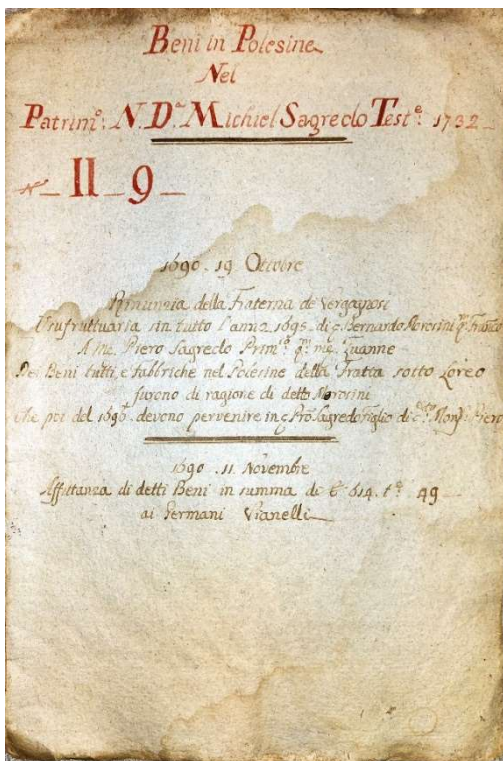 Beni in Polesine
Nel
Patrim.º N. D.ª Michiel Sagredo Test.º 1732
Nº II 9
1690. 19 Ottobre
Rinunzia della Fraterna de Vergagnosi
Usufruttuaria sin tutto l'anno 1695. di Bernardo Morosini
A me. Piero Sagredo Prim.º q.m Zuanne
Dei Beni tutti, e fabbriche nel Polesine della Fratta sotto Loreo
furono di ragione di detto Morosini
Che poi del devono pervenire in Sagredo figlio di Piero
1690. 11. Novembre
Affittanza di detti Beni in summa di 614. 49
ai Germani Vianelli